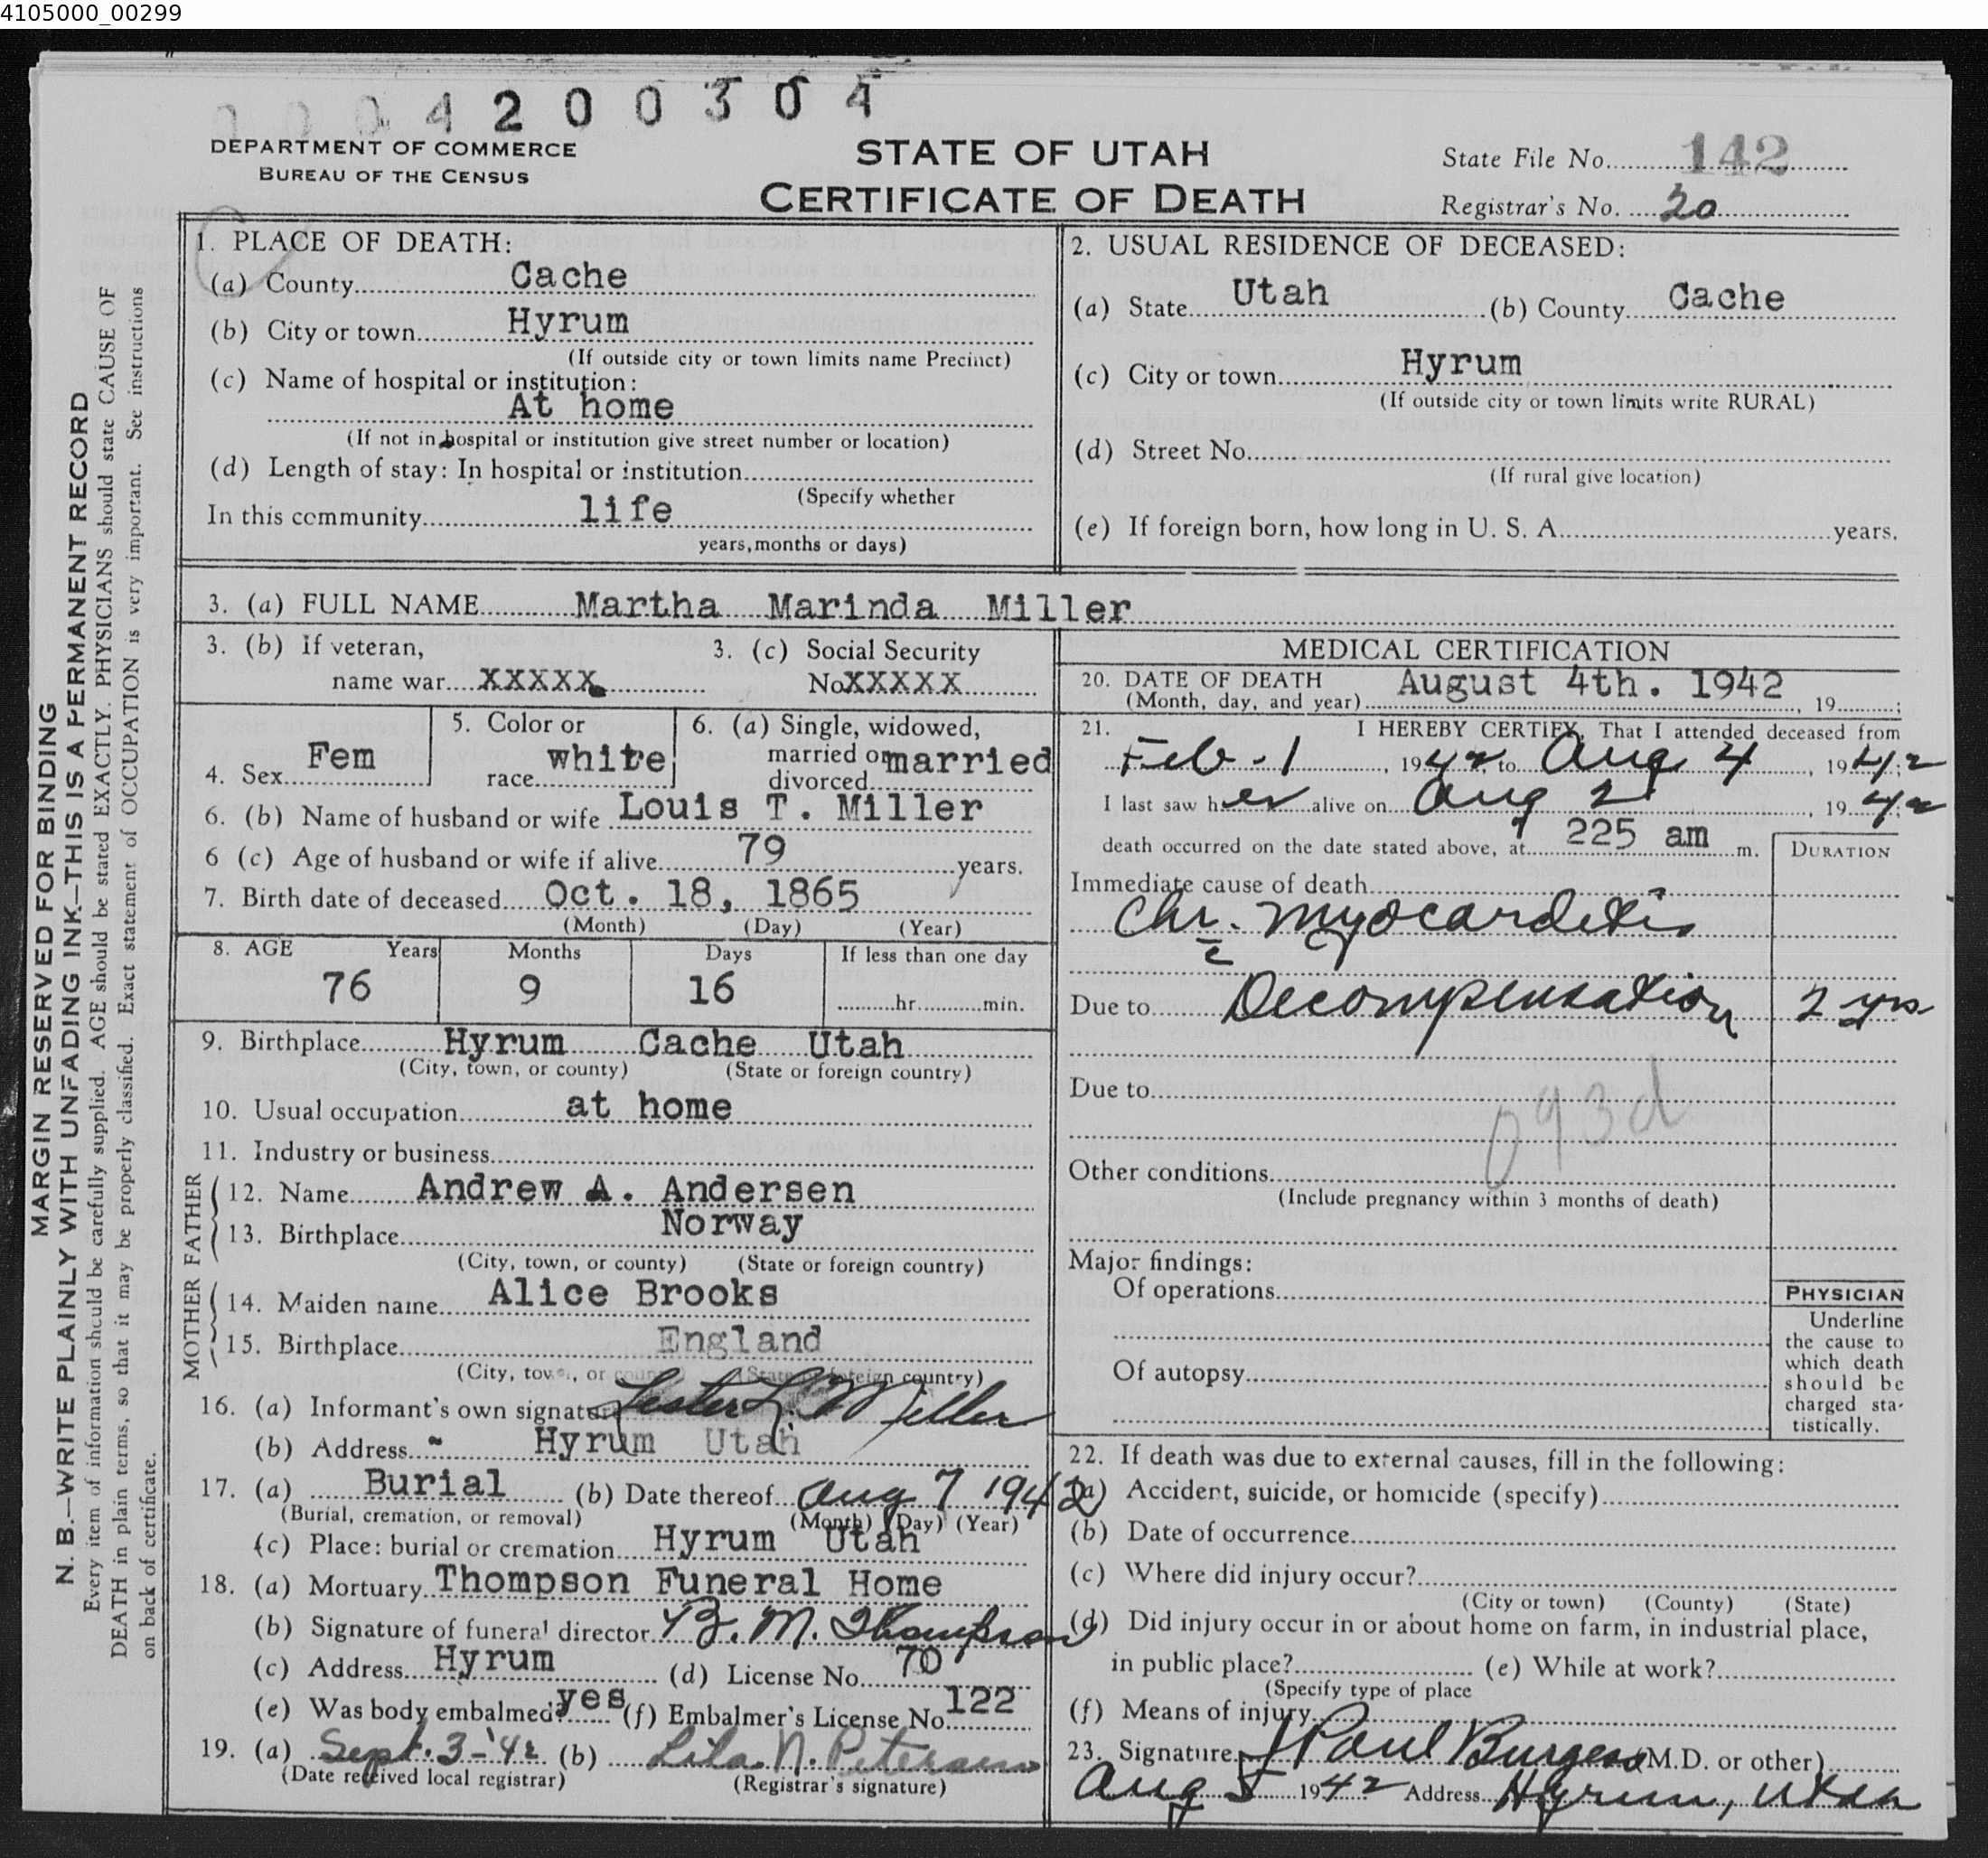 4105000_00299
0004200304
DEPARTMENT OF COMMERCE
BUREAU OF THE CENSUS
STATE OF UTAH
CERTIFICATE OF DEATH
State File No. 142
Registrar's No. 20
MARGIN RESERVED FOR BINDING
N. B.—WRITE PLAINLY WITH UNFADING INK—THIS IS A PERMANENT RECORD
Every item of information should be carefully supplied. AGE should be stated EXACTLY. PHYSICIANS should state CAUSE OF
DEATH in plain terms, so that it may be properly classified. Exact statement of OCCUPATION is very important. See instructions
on back of certificate.
1. PLACE OF DEATH:
(a) County Cache
(b) City or town Hyrum
(If outside city or town limits name Precinct)
(c) Name of hospital or institution:
At home
(If not in hospital or institution give street number or location)
(d) Length of stay: In hospital or institution
(Specify whether
In this community life
years, months or days)
2. USUAL RESIDENCE OF DECEASED:
(a) State Utah (b) County Cache
(c) City or town Hyrum
(If outside city or town limits write RURAL)
(d) Street No.
(If rural give location)
(e) If foreign born, how long in U. S. A. years.
3. (a) FULL NAME Martha Marinda Miller
3. (b) If veteran,
name war XXXXX
3. (c) Social Security
No XXXXX
4. Sex Fem
5. Color or
race white
6. (a) Single, widowed,
married or married
divorced
6. (b) Name of husband or wife Louis T. Miller
6 (c) Age of husband or wife if alive 79 years.
7. Birth date of deceased Oct. 18, 1865
(Month) (Day) (Year)
8. AGE Years Months Days If less than one day
76 9 16 hr. min.
9. Birthplace Hyrum Cache Utah
(City, town, or county) (State or foreign country)
10. Usual occupation at home
11. Industry or business
FATHER
12. Name Andrew A. Andersen
13. Birthplace Norway
(City, town, or county) (State or foreign country)
MOTHER
14. Maiden name Alice Brooks
15. Birthplace England
(City, town, or county) (State or foreign country)
16. (a) Informant's own signature Lester L. Miller
(b) Address Hyrum Utah
17. (a) Burial (b) Date thereof Aug 7 1942
(Burial, cremation, or removal) (Month) (Day) (Year)
(c) Place: burial or cremation Hyrum Utah
18. (a) Mortuary Thompson Funeral Home
(b) Signature of funeral director B. M. Thompson
(c) Address Hyrum (d) License No. 70
(e) Was body embalmed? yes (f) Embalmer's License No. 122
19. (a) Sept. 3-'42 (b) Lila N. Petersen
(Date received local registrar) (Registrar's signature)
MEDICAL CERTIFICATION
20. DATE OF DEATH August 4th. 1942
(Month, day, and year) , 19 ;
21. I HEREBY CERTIFY, That I attended deceased from
Feb-1, 1942, to Aug 4, 1942
I last saw her alive on Aug 2, 1942
death occurred on the date stated above, at 225 am m.
DURATION
Immediate cause of death
Chr. Myocarditis
c
Due to Decompensation 2 yrs
Due to
093d
Other conditions
(Include pregnancy within 3 months of death)
Major findings:
Of operations
Of autopsy
PHYSICIAN
Underline
the cause to
which death
should be
charged sta-
tistically.
22. If death was due to external causes, fill in the following:
(a) Accident, suicide, or homicide (specify)
(b) Date of occurrence
(c) Where did injury occur?
(City or town) (County) (State)
(d) Did injury occur in or about home on farm, in industrial place,
in public place? (e) While at work?
(Specify type of place
(f) Means of injury
23. Signature J Paul Burgess (M.D. or other)
Aug 5 1942 Address Hyrum, Utah